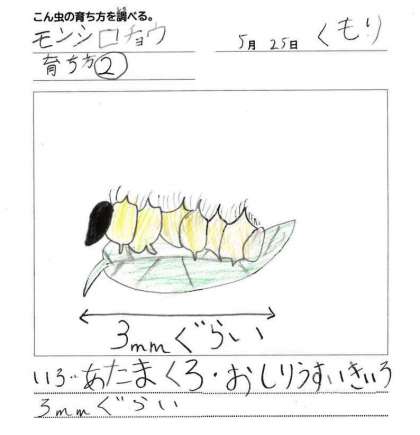 こん虫の育ち方を調べる。
モンシロチョウ
5月 25日 くもり
育ち方②
3mmぐらい
いろ‥あたまくろ・おしりうすいきいろ
3mmぐらい